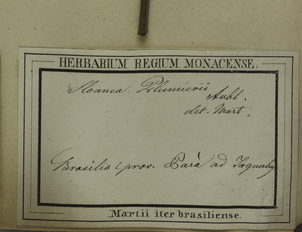 HERBARIUM REGIUM MONACENSE.
Sloanea Plumierii
Aubl.
det. Mart.
Brasilia (prov. Pará ad
Martii iter brasiliense.